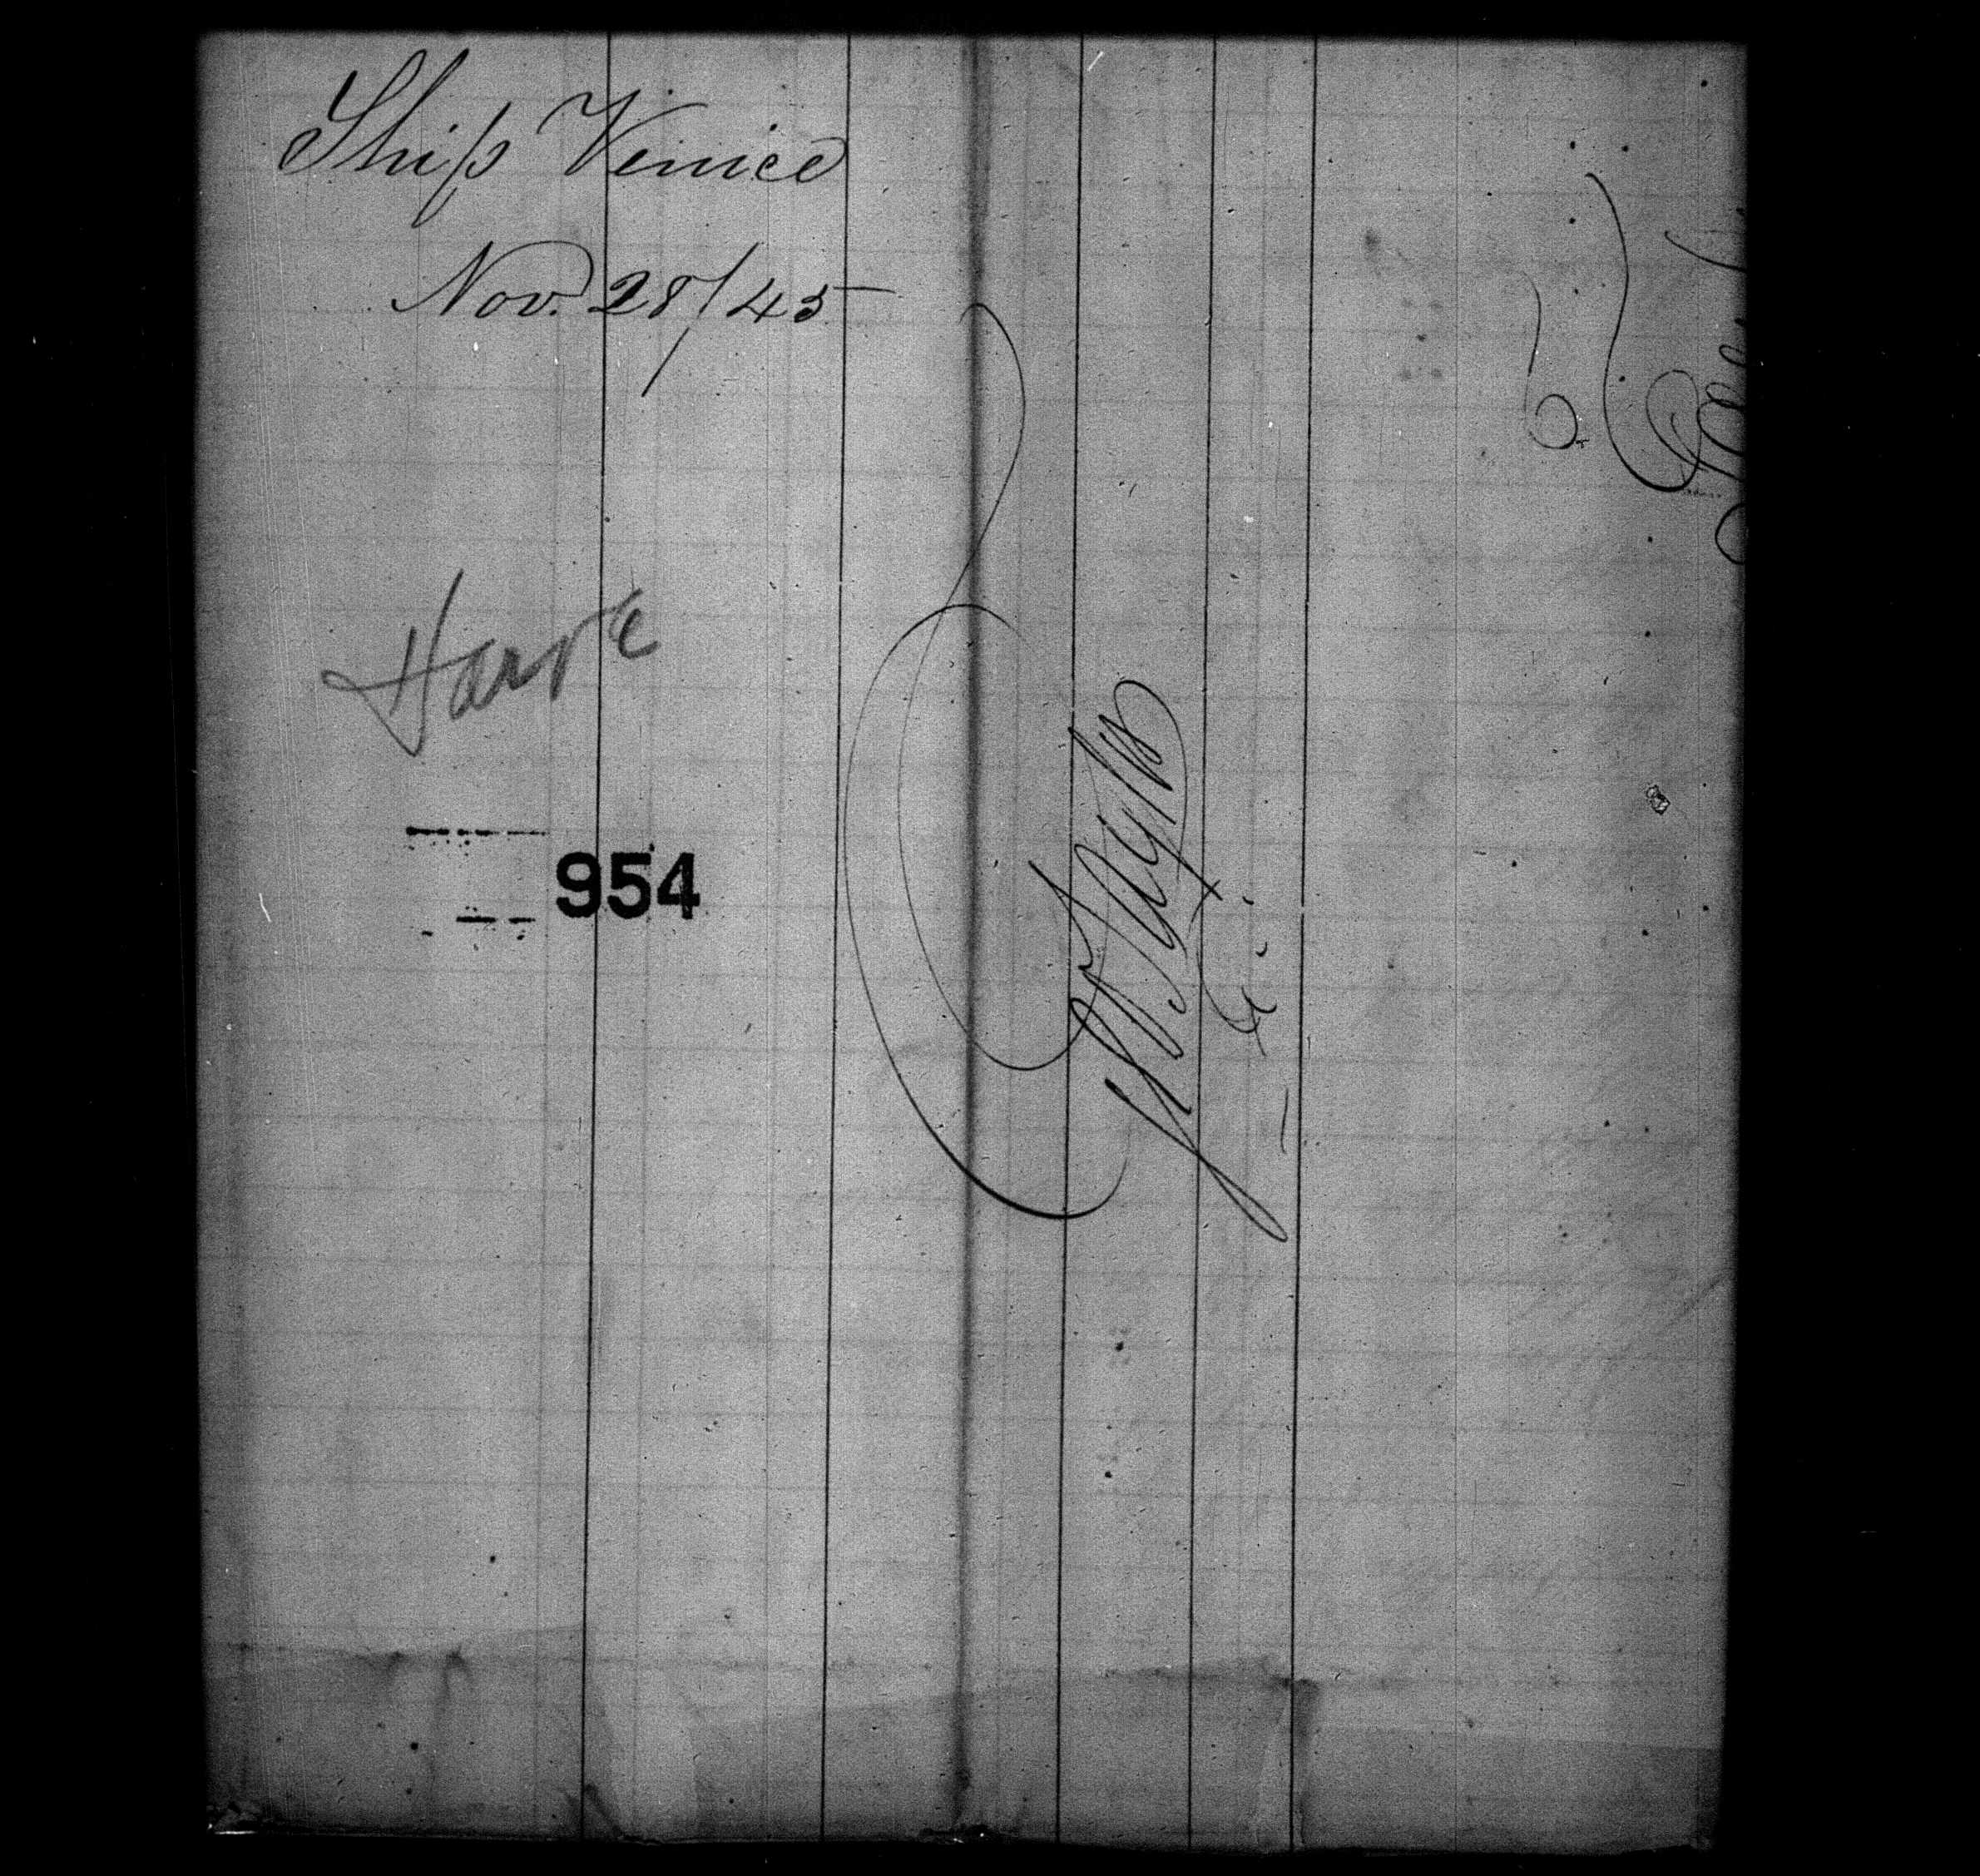 Ship Venice
Nov. 28/45
Havre
954